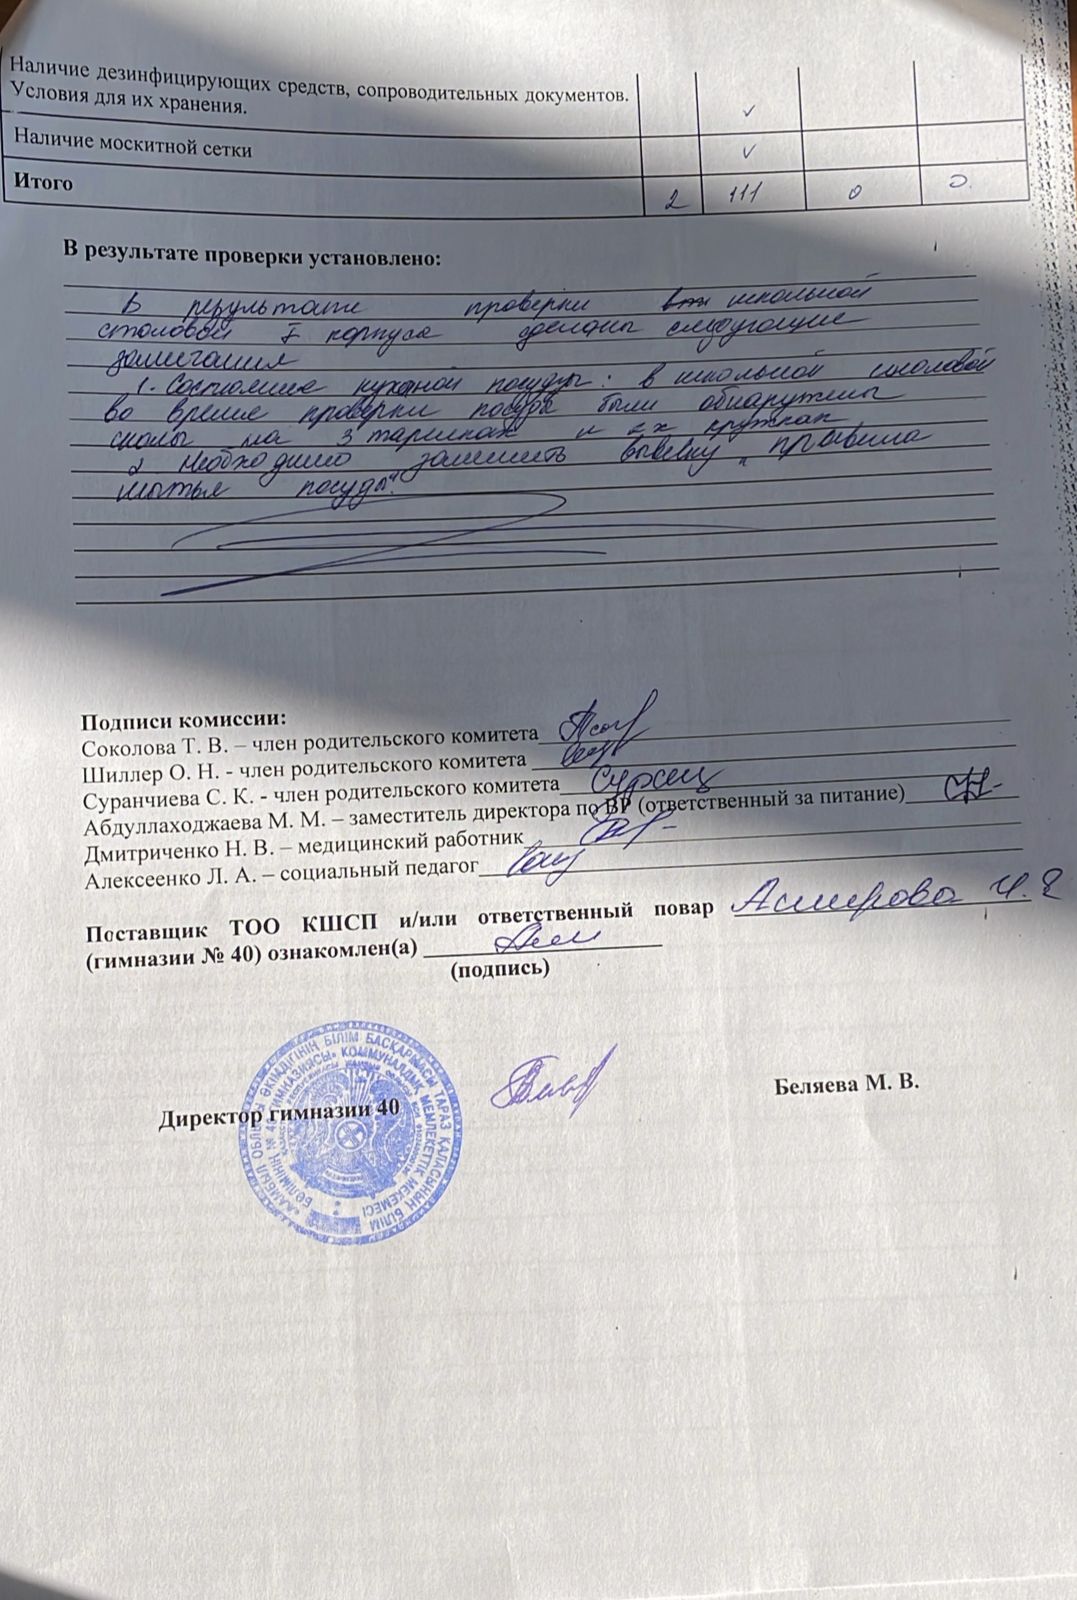 Наличие дезинфицирующих средств, сопроводительных документов.
Условия для их хранения. ✓
Наличие москитной сетки ✓
Итого 2 111 0 0
В результате проверки установлено:
В результате проверки школьной
столовой I корпуса сделаны следующие
замечания
1. Состояние кухонной посуды: в школьной столовой
во время проверки посуды были обнаружены
сколы на 3 тарелках и 2х кружках
2 Необходимо заменить вывеску "правила
мытья посуды".
Подписи комиссии:
Соколова Т. В. – член родительского комитета
Шиллер О. Н. - член родительского комитета
Суранчиева С. К. - член родительского комитета
Абдуллаходжаева М. М. – заместитель директора по ВР (ответственный за питание)
Дмитриченко Н. В. – медицинский работник
Алексеенко Л. А. – социальный педагог
Поставщик ТОО КШСП и/или ответственный повар
(гимназии № 40) ознакомлен(а)
(подпись)
Директор гимназии 40
Беляева М. В.